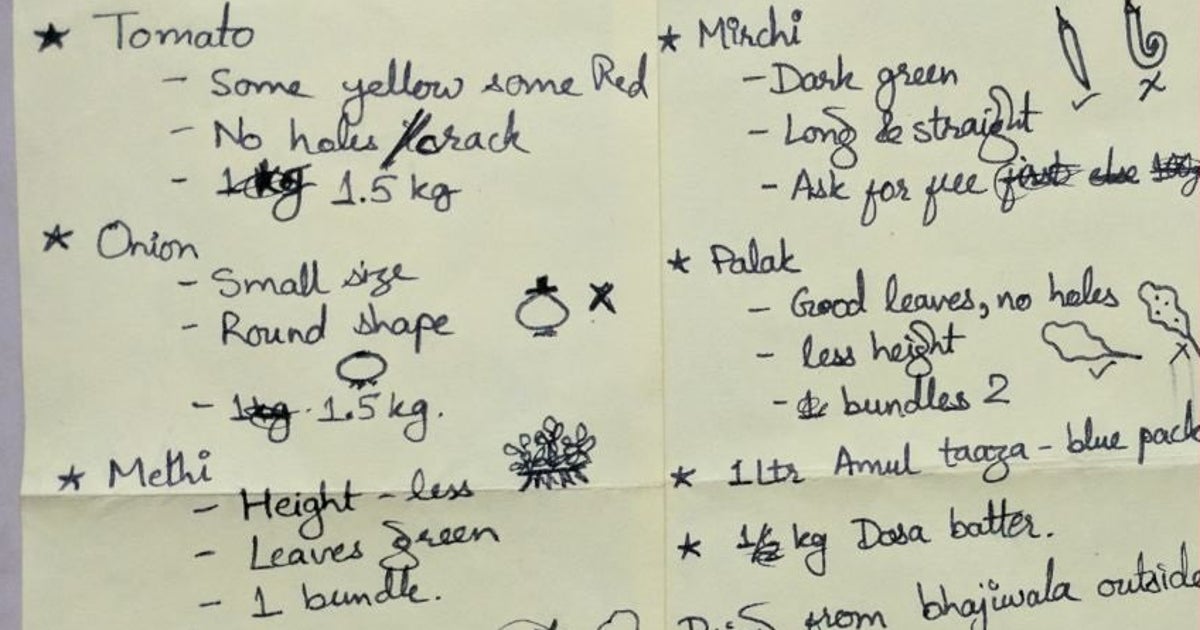 ★ Tomato
- Some yellow some Red
- No holes / crack
- 1.5 kg
★ Onion
- Small size
- Round shape
- 1.5 kg.
★ Methi
- Height - less
- Leaves green
- 1 bundle.
★ Mirchi
- Dark green
- Long & straight
- Ask for free
★ Palak
- Good leaves, no holes
- less height
- bundles 2
★ 1 Ltr Amul taaza - blue pack
★ 1/2 kg Dosa batter.
from bhajiwala outside